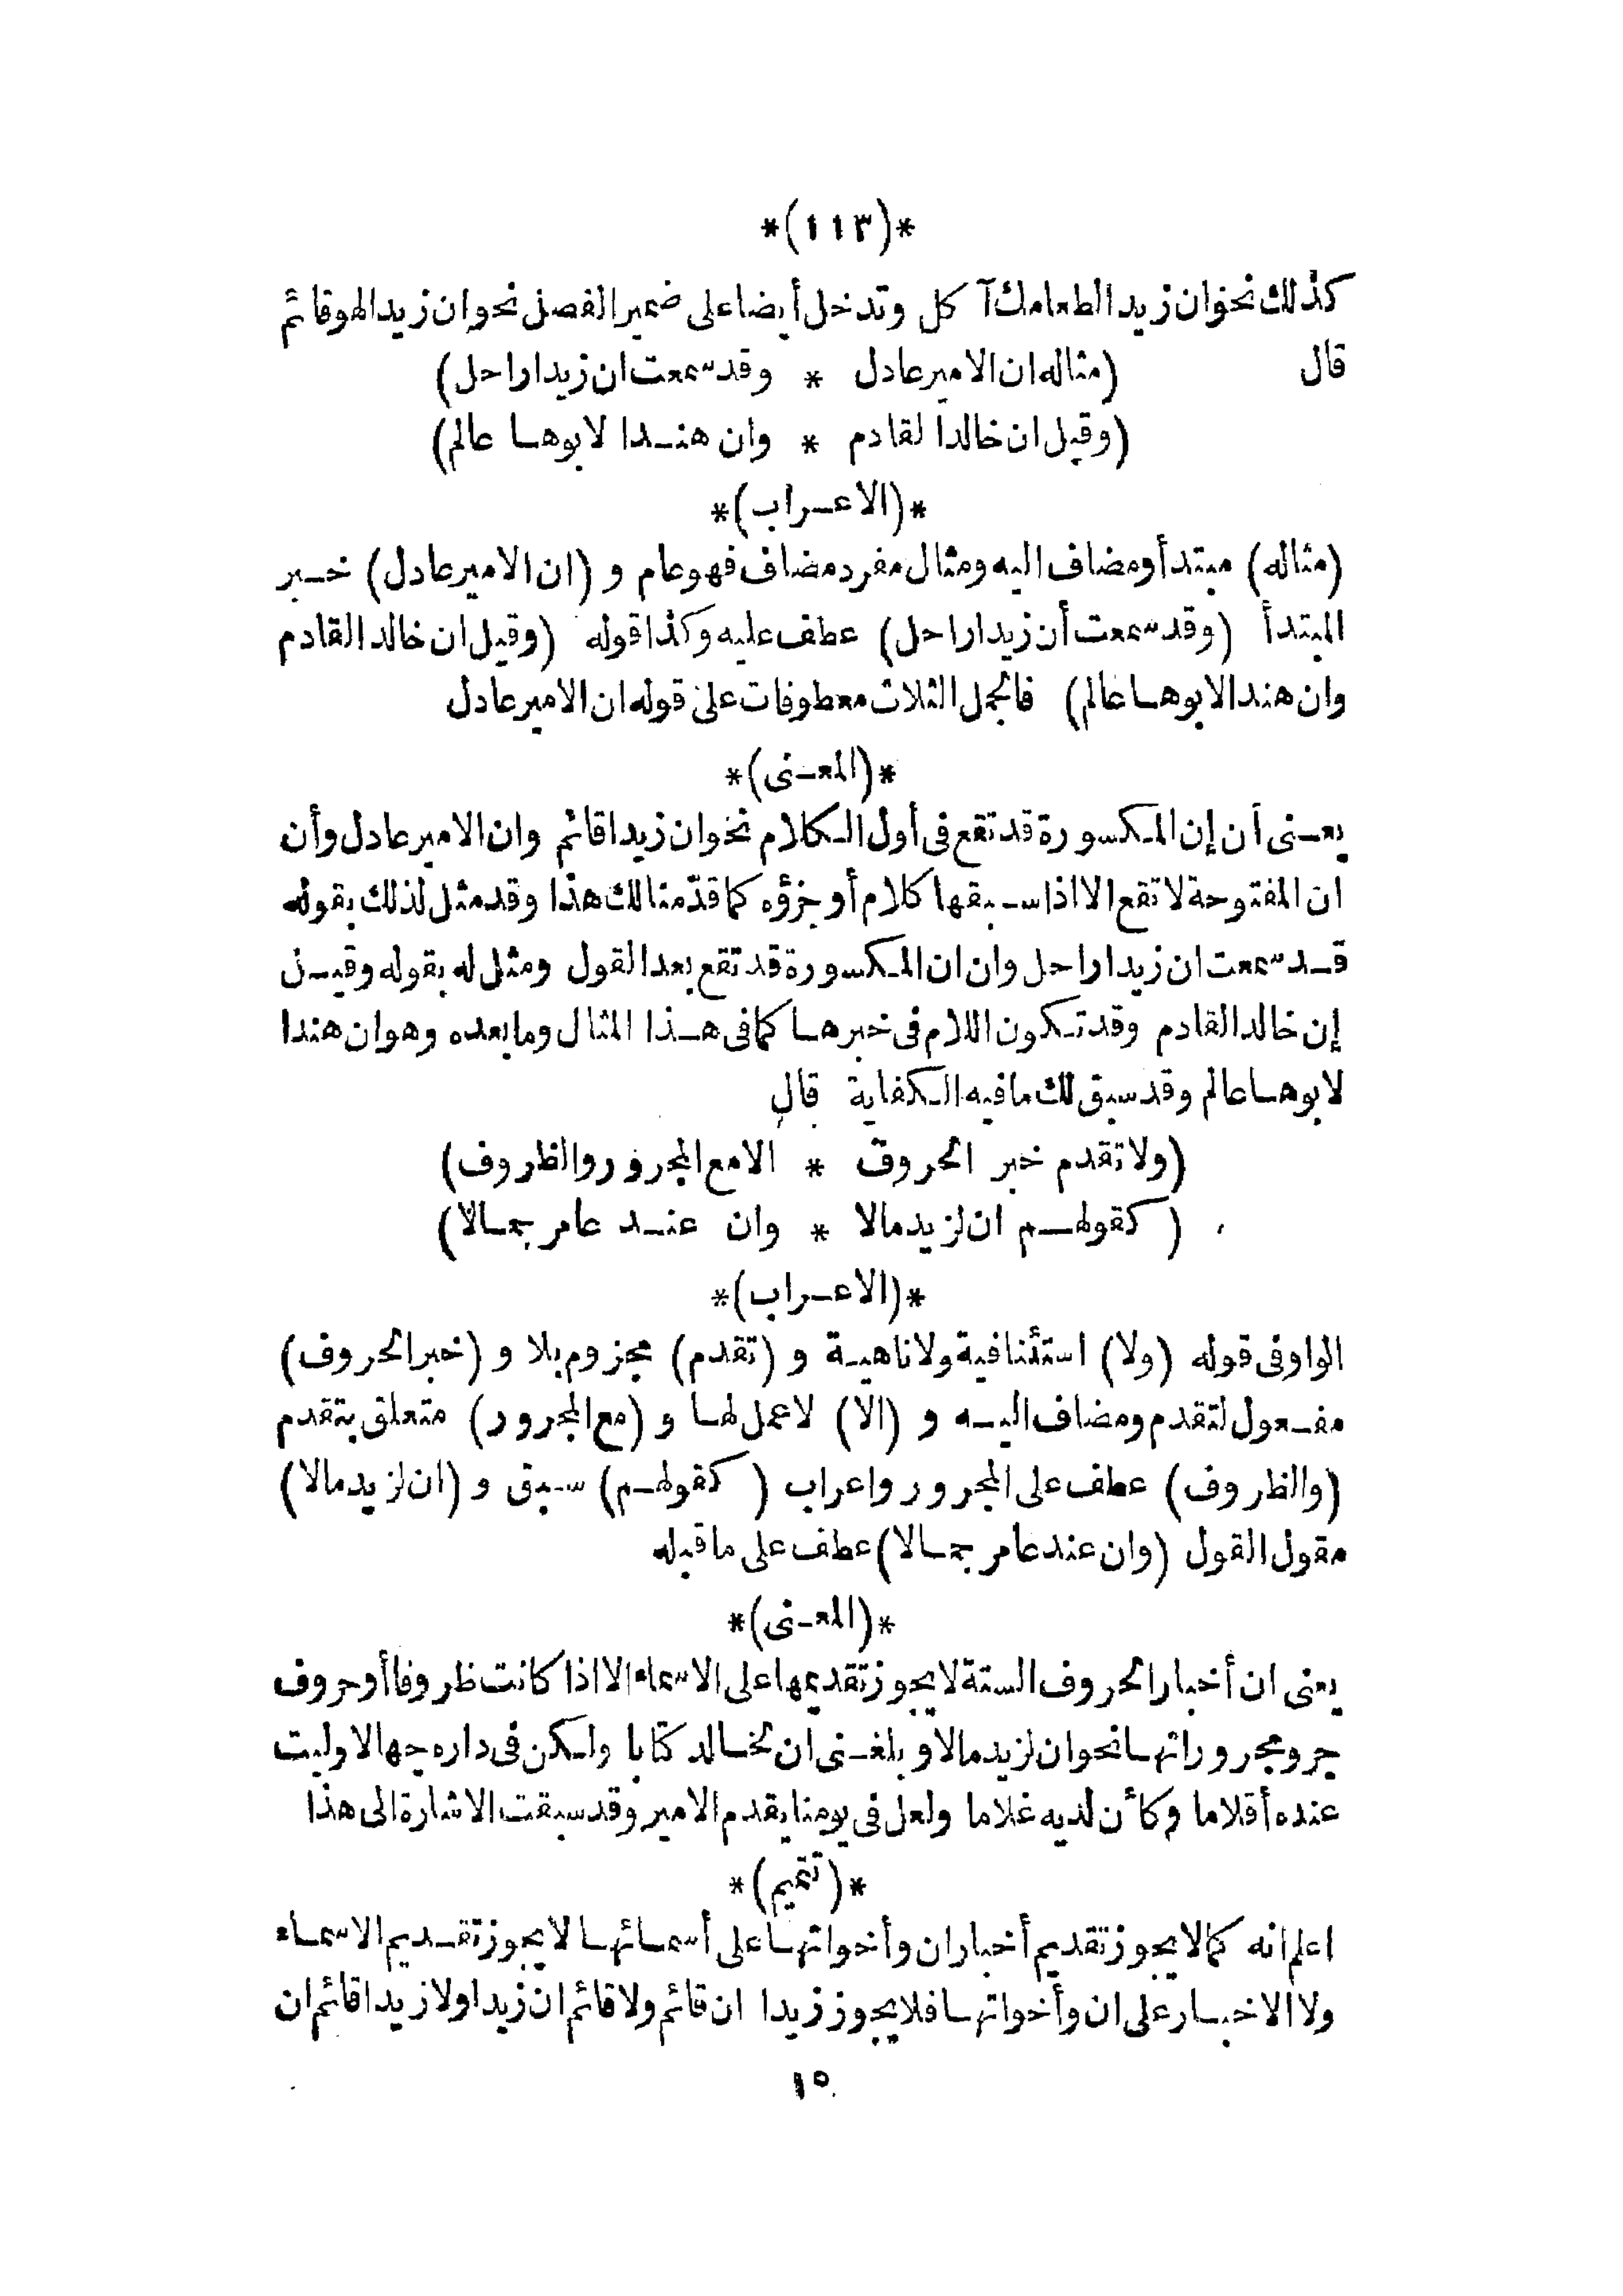 *(١١٣)*
كذلك نحو ان زيدا لطعامك آكل وتدخل أيضا على ضمير الفصل نحو ان زيدا لهو قائم
قال (مثاله ان الامير عادل * وقد سمعت ان زيدا راحل)
(وقيل ان خالدا لقادم * وان هنـدا لابوهـا عالم)
*(الاعـراب)*
(مثاله) مبتدأ ومضاف اليه ومثال مفرد مضاف فهو عام و (ان الامير عادل) خـبر
المبتدأ (وقد سمعت أن زيدا راحل) عطف عليه وكذا قوله (وقيل ان خالدا لقادم
وان هندا لابوهـا عالم) فالجمل الثلاث معطوفات على قوله ان الامير عادل
*(المعـنى)*
يعـنى أن إن المـكسورة قد تقع فى أول الـكلام نحو ان زيدا قائم وان الامير عادل وأن
ان المفتوحة لا تقع الا اذا سـبقها كلام أو جزؤه كما قدّمنا لك هذا وقد مثل لذلك بقوله
قـد سمعت ان زيدا راحل وان ان المـكسورة قد تقع بعد القول ومثل له بقوله وقيـل
إن خالدا لقادم وقد تـكون اللام فى خبرهـا كما فى هـذا المثال وما بعده وهو ان هندا
لابوهـا عالم وقد سبق لك ما فيه الـكفاية قال
(ولا تقدم خبر الحروف * الا مع المجرور والظروف)
(كقولهـم ان لزيد مالا * وان عنـد عامر جمـالا)
*(الاعـراب)*
الواو فى قوله (ولا) استئنافية ولا ناهيـة و (تقدم) مجزوم بلا و (خبر الحروف)
مفـعول لتقدم ومضاف اليـه و (الا) لا عمل لهـا و (مع المجرور) متعلق بتقدم
(والظروف) عطف على المجرور واعراب (كقولهـم) سـبق و (ان لزيد مالا)
مقول القول (وان عند عامر جمـالا) عطف على ما قبله
*(المعـنى)*
يعنى ان أخبار الحروف الستة لا يجوز تقديمها على الاسماء الا اذا كانت ظروفا أو حروف
جر ومجروراتهـا نحو ان لزيد مالا و بلغـنى ان لخـالد كتابا ولـكن فى داره جهالا وليت
عنده أقلاما وكأن لديه غلاما ولعل فى يومنا يقدم الامير وقد سبقت الاشارة الى هذا
*(تتميم)*
اعلم انه كما لا يجوز تقديم أخبار ان وأخواتهـا على أسمـائهـا لا يجوز تقـديم الاسمـاء
ولا الاخبـار على ان وأخواتهـا فلا يجوز زيدا ان قائم ولا قائم ان زيدا ولا زيدا قائم ان
١٥